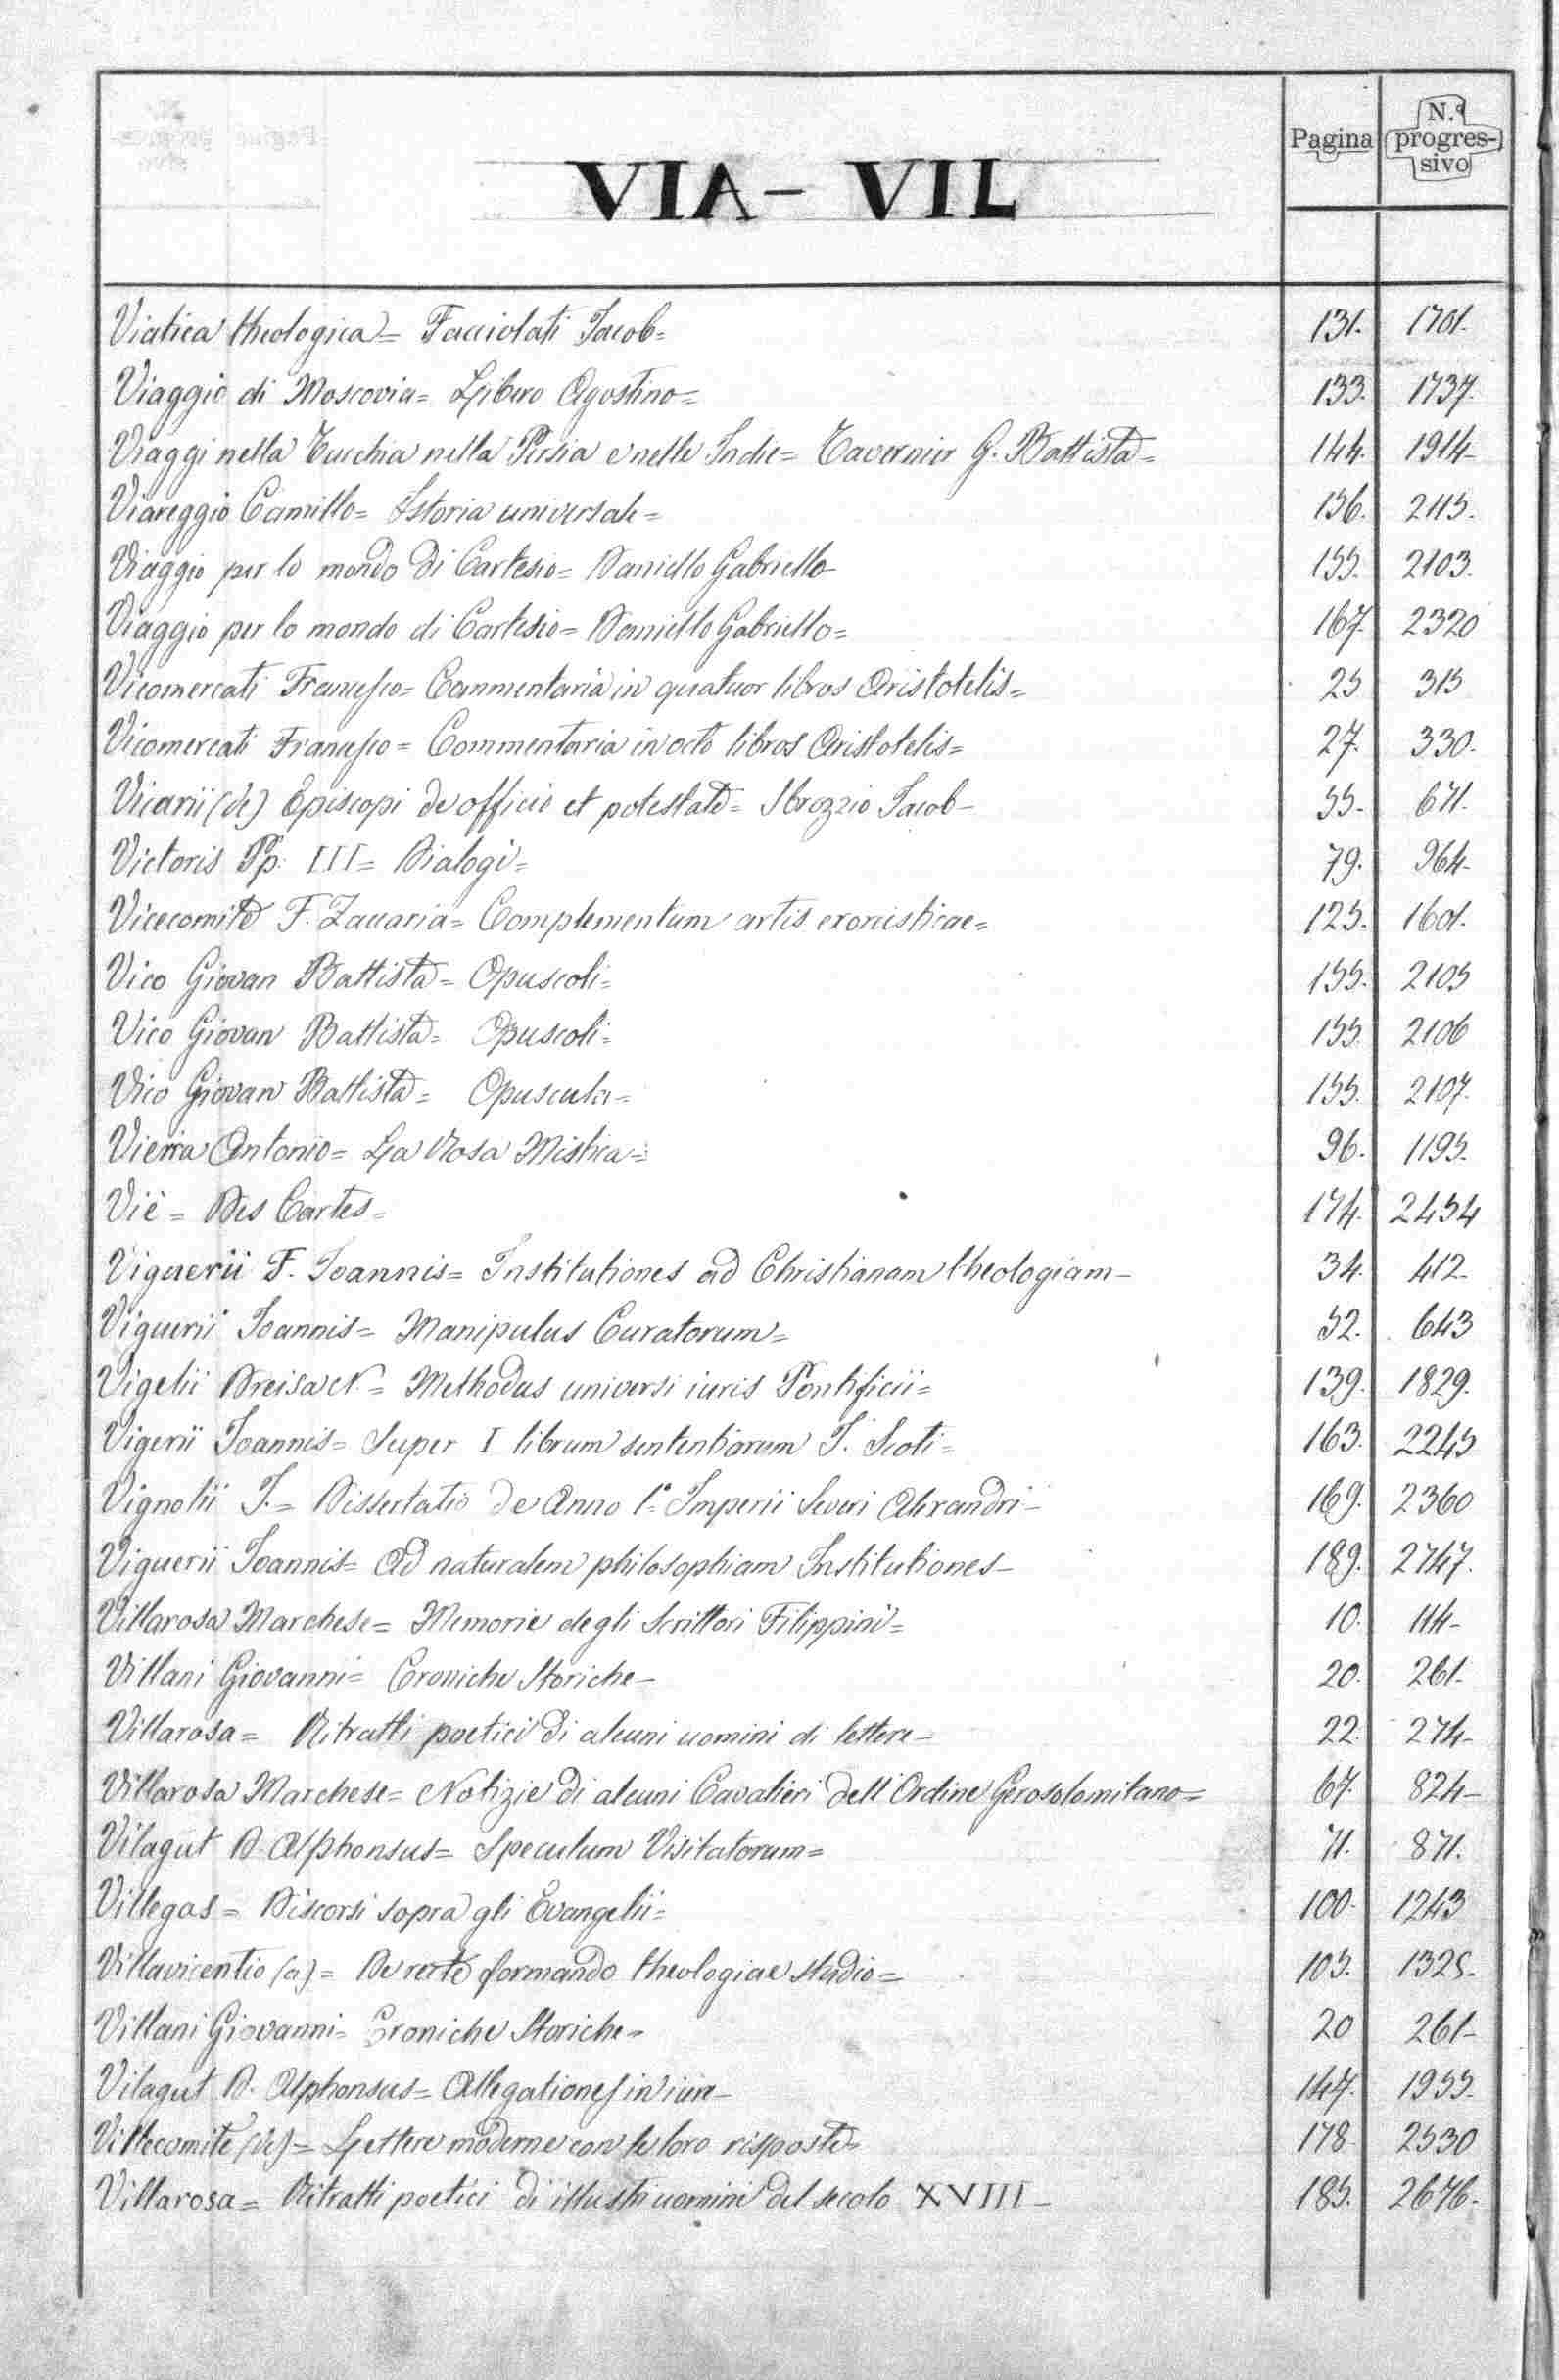 Pagina N.º progres-
sivo
VIA - VIL
Viatica theologica = Facciolati Jacob = 131. 1701.
Viaggio di Moscovia = Libero Agostino = 133. 1737.
Viaggi nella Turchia nella Persia e nelle Indie = Tavernier G. Battista = 144. 1914
Viareggio Camillo = Istoria universale = 156. 2115.
Viaggio per lo mondo di Cartesio = Daniello Gabriello 155. 2103.
Viaggio per lo mondo di Cartesio = Daniello Gabriello = 167. 2320
Vicomercati Francesco = Commentaria in quatuor libros Aristotelis = 25 315
Vicomercati Francesco = Commentaria in octo libros Aristotelis = 27. 330.
Vicarii (de) Episcopi de officio et potestate = Sbrozzio Jacob - 55. 671.
Victoris Pp. III = Dialogi = 79. 964
Vicecomite F. Zaccaria = Complementum artis exorcisticae = 125. 1601.
Vico Giovan Battista = Opuscoli = 155. 2105
Vico Giovan Battista = Opuscoli = 155. 2106
Vico Giovan Battista = Opuscula = 155. 2107.
Vieira Antonio = La Rosa Mistica = 96. 1195.
Viè = Des Cartes = 174. 2454
Viguerii F. Joannis = Institutiones ad Christianam theologiam - 34. 412
Viguerii Joannis = Manipulus Curatorum = 52. 643
Vigelii N. = Methodus universi iuris Pontificii = 139. 1829.
Vigerii Joannis = Super I librum sententiarum S. Scoti = 163. 2245
Vignolii J. = Dissertatio de Anno 1.º Imperii Severi Alexandri - 169. 2360
Viguerii Joannis = Ad naturalem philosophiam Institutiones - 189. 2747.
Villarosa Marchese = Memorie degli Scrittori Filippini = 10. 114
Villani Giovanni = Croniche Storiche - 20. 261.
Villarosa = Ritratti poetici di alcuni uomini di lettere - 22. 274
Villarosa Marchese = Notizie di alcuni Cavalieri dell'Ordine Gerosolomitano = 67. 824
Vilagut D. Alphonsus = Speculum Visitatorum = 71. 871.
Villegas = Discorsi sopra gli Evangelii = 100. 1243
Villavicentio (a) = De recte formando theologiae studio = 105. 1325.
Villani Giovanni = Croniche Storiche = 20 261
Vilagut D. Alphonsus = Allegationes in iure - 147. 1955.
Villecomite (de) = Lettere moderne con le loro risposte = 178 2530
Villarosa = Ritratti poetici di illustri uomini del secolo XVIII - 185. 2676.